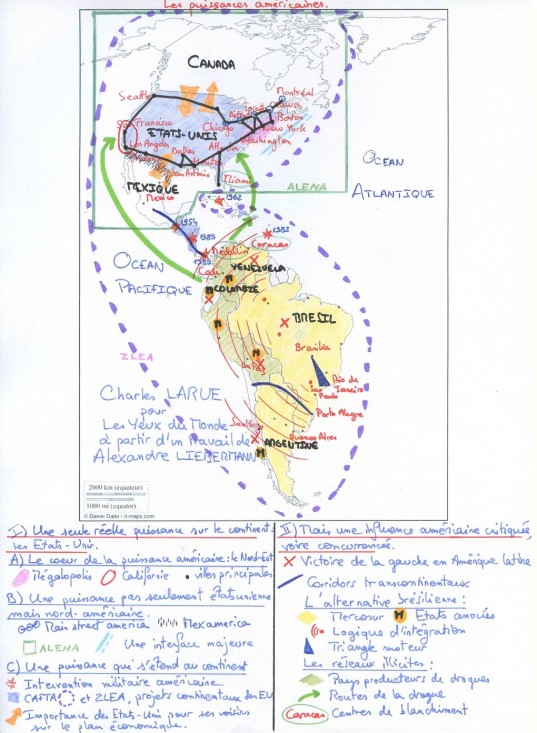 Les puissances américaines.
CANADA
Seattle
Montréal
Ottawa
Detroit
Boston
S. Francisco
Chicago
New York
ETATS-UNIS
Washington
Los Angeles
Dallas
Atlanta
Houston
San Antonio
Miami
MEXIQUE
Mexico
ALENA
OCEAN
ATLANTIQUE
1962
1954
1983
1989
1989
Caracas
Medellin
Cali
VENEZUELA
COLOMBIE
OCEAN
PACIFIQUE
BRESIL
Brasilia
ZLEA
La Paz
Rio de
Janeiro
Sao
Paulo
Porto Alegre
Santiago
Buenos Aires
ARGENTINE
M
M
M
M
M
Charles LARUE
pour
Les Yeux du Monde
à partir d'un travail de
Alexandre LIEBERMANN
2000 km (équateur)
1000 mi (equator)
© Daniel Dalet / d-maps.com
I) Une seule réelle puissance sur le continent:
les Etats-Unis.
A) Le coeur de la puissance américaine: le Nord-Est
Mégalopolis Californie villes principales
B) Une puissance pas seulement étatsunienne
mais nord-américaine.
Main street america Mexamerica
ALENA Une interface majeure
C) Une puissance qui s'étend au continent
Intervention militaire américaine
CAFTA et ZLEA, projets continentaux des EU
Importance des Etats-Unis pour ses voisins
sur le plan économique.
II) Mais une influence américaine critiquée,
voire concurrencée.
Victoire de la gauche en Amérique latine
Corridors transcontinentaux
L'alternative brésilienne:
Mercosur M Etats associés
Logique d'intégration
Triangle moteur
Les réseaux illicites:
Pays producteurs de drogues
Routes de la drogue
Caracas Centres de blanchiment